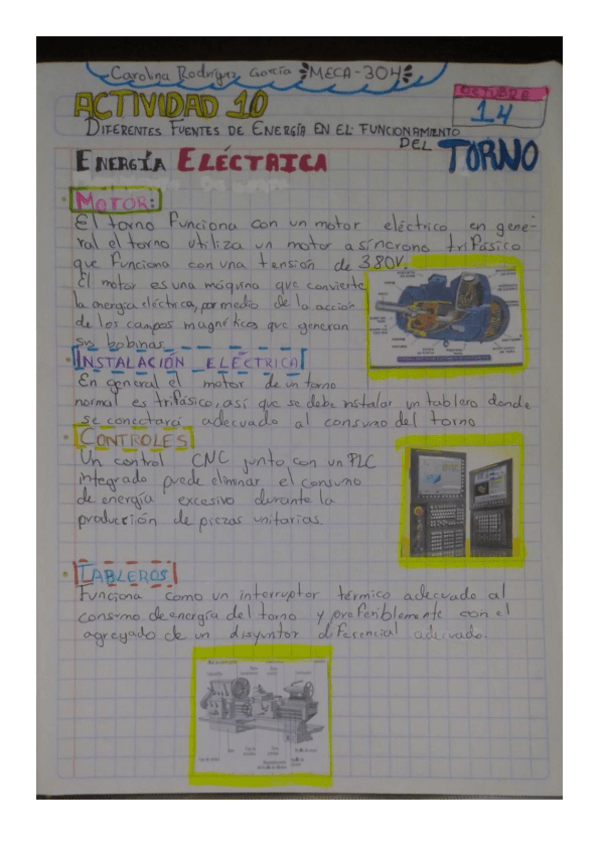 Carolina Rodríguez García MECA-304
OCTUBRE
14
ACTIVIDAD 10
DIFERENTES FUENTES DE ENERGÍA EN EL FUNCIONAMIENTO
DEL TORNO
ENERGÍA ELÉCTRICA
MOTOR:
El torno funciona con un motor eléctrico en gene-
ral el torno utiliza un motor asíncrono trifásico
que funciona con una tensión de 380V.
El motor es una máquina que convierte
la energía eléctrica, por medio de la acción
de los campos magnéticos que generan
sus bobinas
INSTALACIÓN ELÉCTRICA
En general el motor de un torno
normal es trifásico, así que se debe instalar un tablero donde
se conectará adecuado al consumo del torno
CONTROLES
Un control CNC junto con un PLC
integrado puede eliminar el consumo
de energía excesivo durante la
producción de piezas unitarias.
TABLEROS
Funciona como un interruptor térmico adecuado al
consumo de energía del torno y preferiblemente con el
agregado de un disyuntor diferencial adecuado.